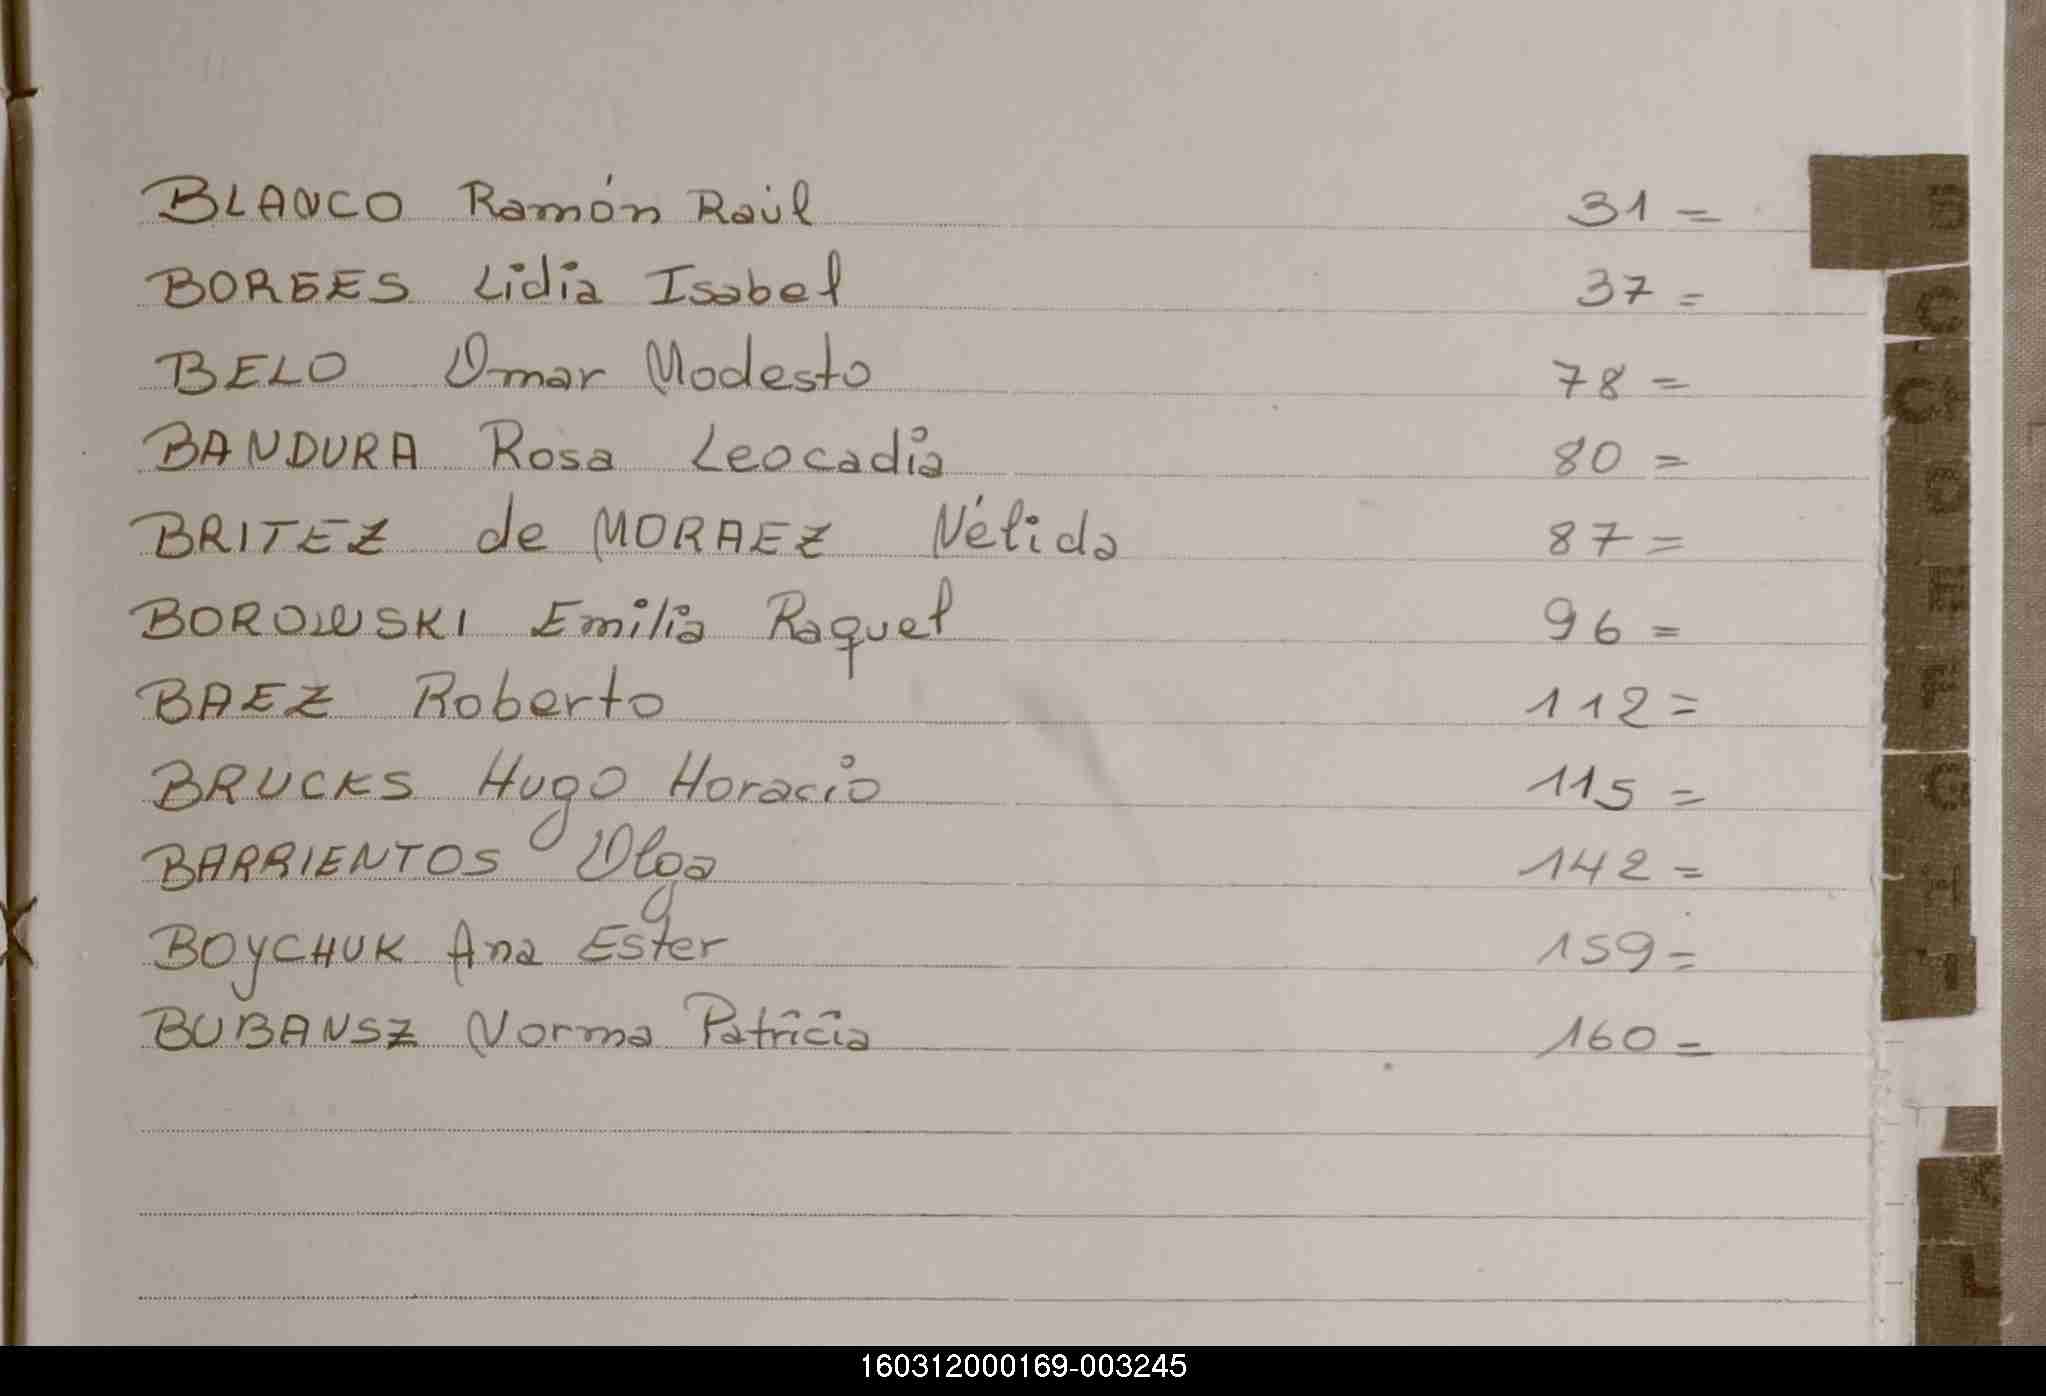 BLANCO Ramón Raúl 31=
BORGES Lidia Isabel 37=
BELO Omar Modesto 78=
BANDURA Rosa Leocadia 80=
BRITEZ de MORAEZ Nélida 87=
BOROWSKI Emilia Raquel 96=
BAEZ Roberto 112=
BRUCKS Hugo Horacio 115=
BARRIENTOS Olga 142=
BOYCHUK Ana Ester 159=
BUBANSZ Norma Patricia 160=
B
C
CH
D
E
F
G
H
I
K
L
160312000169-003245